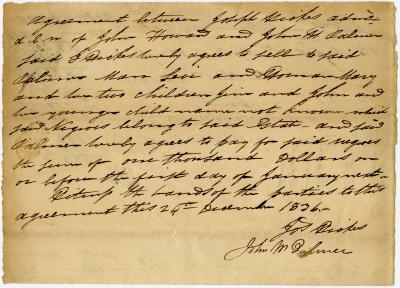 Agreement between Joseph Dickes admr
d.b.n of John Howard and John M Palmer
said J Dickes hereby agrees to sell to said
Palmer Man Levi and Woman Mary
and her two children Jim and John and
her younger child name not known which
said Negroes belong to said Estate and said
Palmer hereby agrees to pay for said negroes
the sum of one thousand Dollars on
or before the first day of January next.
Witness the hands of the parties to this
agreement this 24th December 1836.
Jos Dickes
John M Palmer